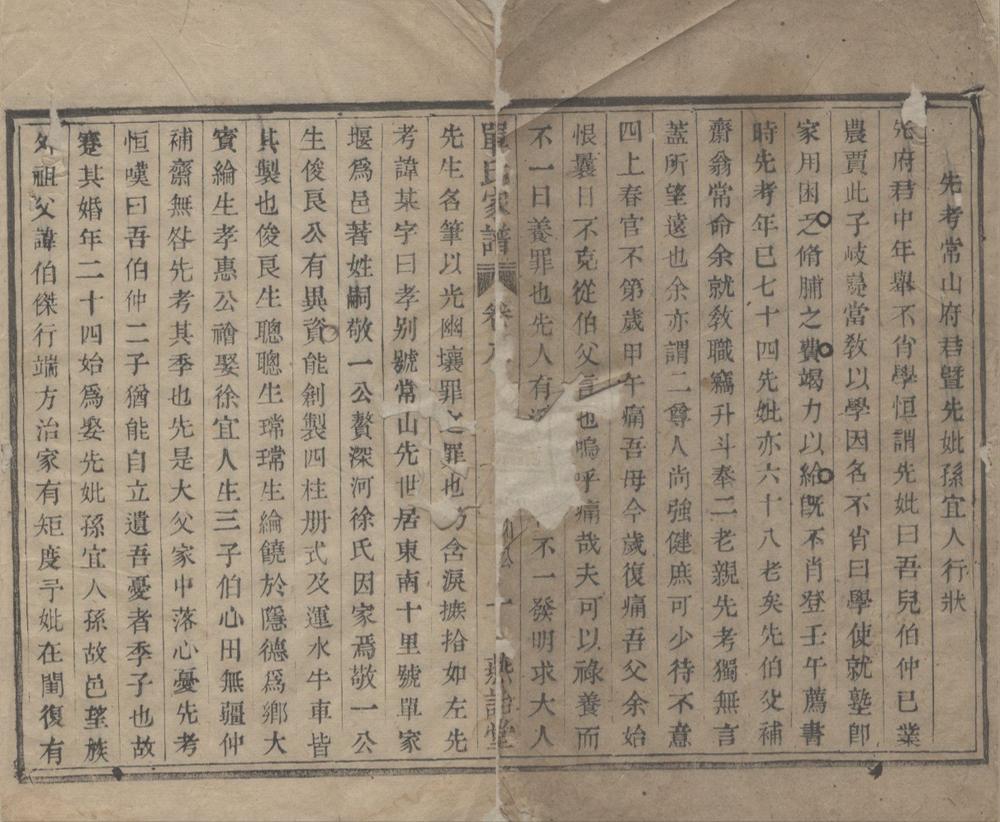 先考常山府君暨先妣孫宜人行狀
先府君中年舉不肖學恒謂先妣曰吾兒伯仲已業
農賈此子岐嶷當敎以學因名不肖曰學使就塾卽
家用困乏脩脯之費竭力以給旣不肖登壬午薦書
時先考年已七十四先妣亦六十八老矣先伯父補
齋翁常命余就敎職竊升斗奉二老親先考獨無言
蓋所望遠也余亦謂二尊人尚強健庶可少待不意
四上春官不第歲甲午痛吾母今歲復痛吾父余始
恨曩日不克從伯父言也嗚呼痛哉夫可以祿養而
不一日養罪也先人有不一發明求大人
單氏家譜 卷 十 燕詒堂
先生名筆以光幽壤罪之罪也乃含淚摭拾如左先
考諱某字曰孝別號常山先世居東南十里號單家
堰爲邑著姓嗣敬一公贅深河徐氏因家焉敬一公
生俊良公有異資能創製四柱册式及運水牛車皆
其製也俊良生聰聰生瑺瑺生綸饒於隱德爲鄉大
賓綸生孝惠公禬娶徐宜人生三子伯心田無疆仲
補齋無咎先考其季也先是大父家中落心憂先考
恒嘆曰吾伯仲二子猶能自立遺吾憂者季子也故
蹇其婚年二十四始爲娶先妣孫宜人孫故邑望族
外祖父諱伯傑行端方治家有矩度予妣在閨復有